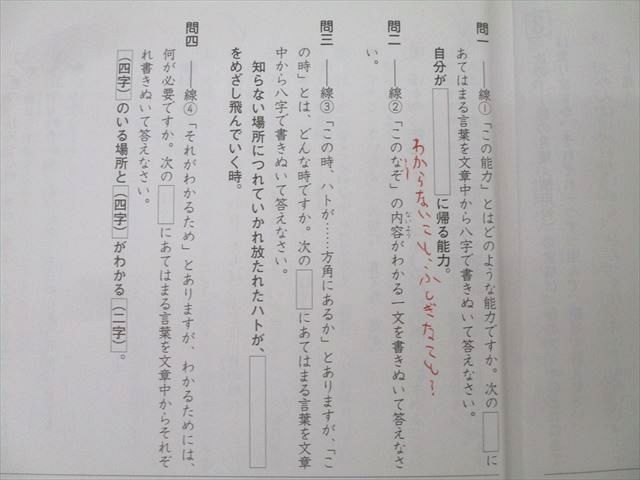 問一 ――線①「この能力」とはどのような能力ですか。次の□に
あてはまる言葉を文章中から八字で書きぬいて答えなさい。
自分が□に帰る能力。
わからないこと、ふしぎなこと?
問二 ――線②「このなぞ」の内容がわかる一文を書きぬいて答えなさ
ないよう
い。
問三 ――線③「この時、ハトが……方角にあるか」とありますが、「こ
の時」とは、どんな時ですか。次の□にあてはまる言葉を文章
中から八字で書きぬいて答えなさい。
知らない場所につれていかれ放たれたハトが、□
をめざし飛んでいく時。
問四 ――線④「それがわかるため」とありますが、わかるためには、
何が必要ですか。次の□にあてはまる言葉を文章中からそれぞ
れ書きぬいて答えなさい。
(四字)のいる場所と(四字)がわかる(二字)。